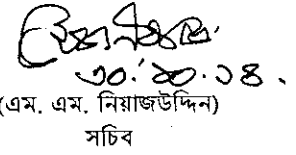 ৩০.১০.১৪.
(এম. এম. নিয়াজউদ্দিন)
সচিব